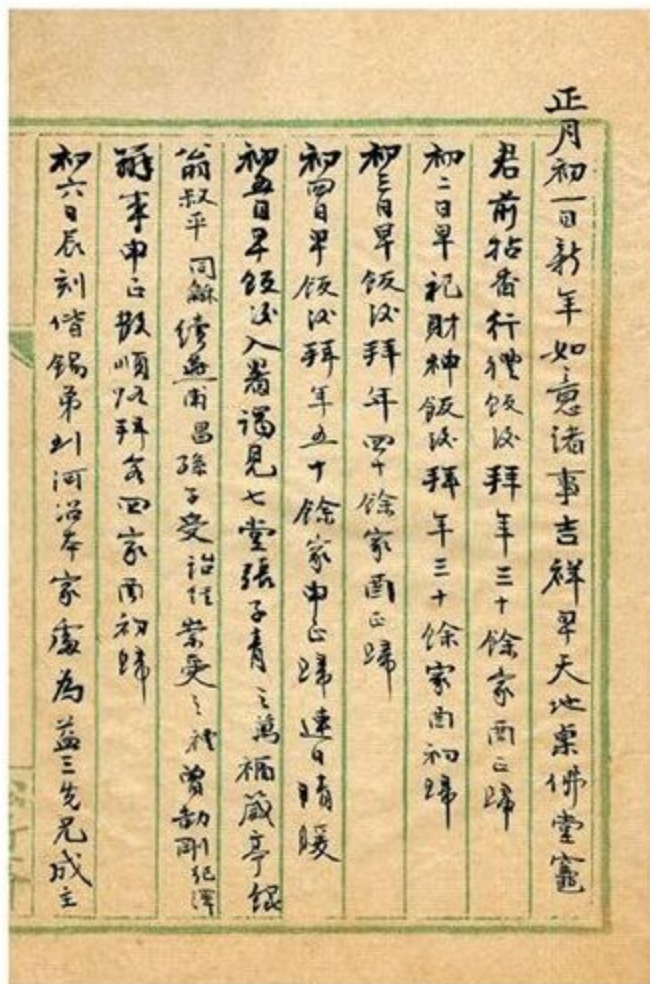 正月初一日新年如意諸事吉祥早天地桌佛堂竈
君前拈香行禮飯後拜年三十餘家酉正歸
初二日早祀財神飯後拜年三十餘家酉初歸
初三日早飯後拜年四十餘家酉正歸
初四日早飯後拜年五十餘家申正歸連日晴暖
初五日早飯後入署謁見七堂張子青之萬福箴亭錕
翁叔平同龢續燕甫昌孫子受詒經崇受之禮曾劼剛紀澤
辦事申正散順路拜客四家酉初歸
初六日辰刻偕錫弟到河沿本家處為益三先兄成主